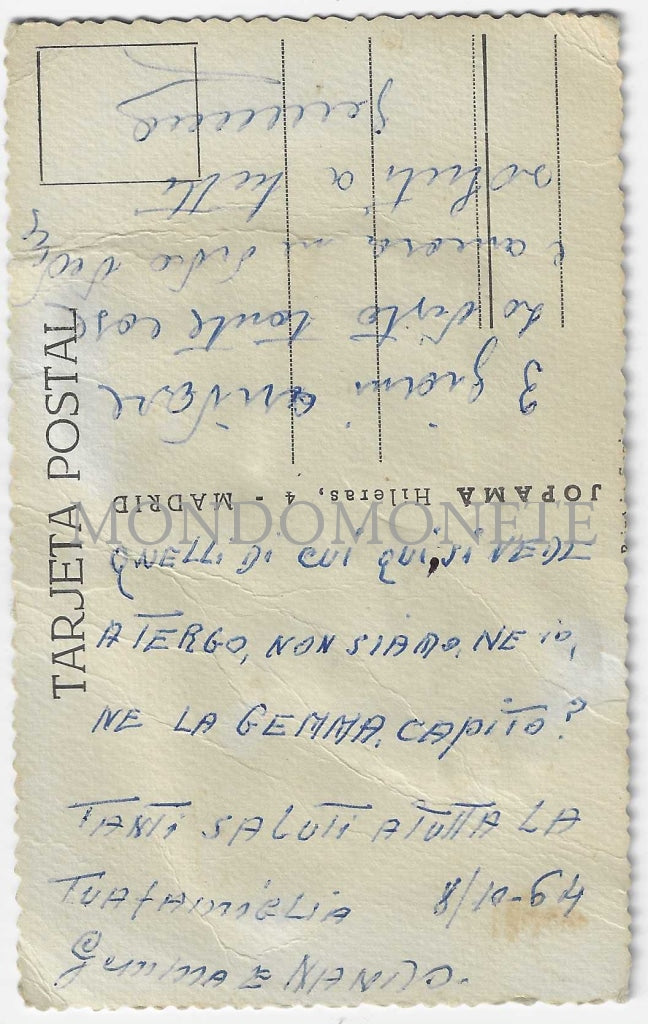 TARJETA POSTAL
JOPAMA Hileras, 4 - MADRID
MONDOMONETE
QUELLI DI CUI QUI SI VEDE
A TERGO, NON SIAMO, NE io,
NE LA GEMMA, CAPITO?
TANTI SALUTI A TUTTA LA
TUA FAMIGLIA 8/10-64
Gemma E NANDO.
3 giorni
ho visto tante cose
e ancora
saluti a tutti